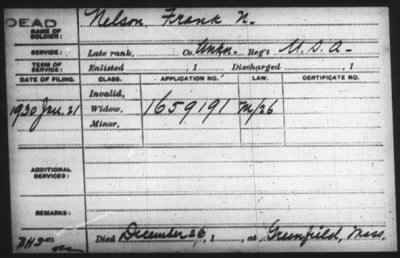 DEAD
NAME OF SOLDIER: Nelson, Frank N.
SERVICE: Late rank, Co. Unkn. Reg't U.S.A.
TERM OF SERVICE: Enlisted , 1 Discharged , 1
DATE OF FILING. CLASS. APPLICATION NO. LAW. CERTIFICATE NO.
Invalid,
1930 Jan. 21 Widow, 1659191 M/26
Minor,
ADDITIONAL SERVICES:
REMARKS:
Died December 26, 1 , at Greenfield, Mass.